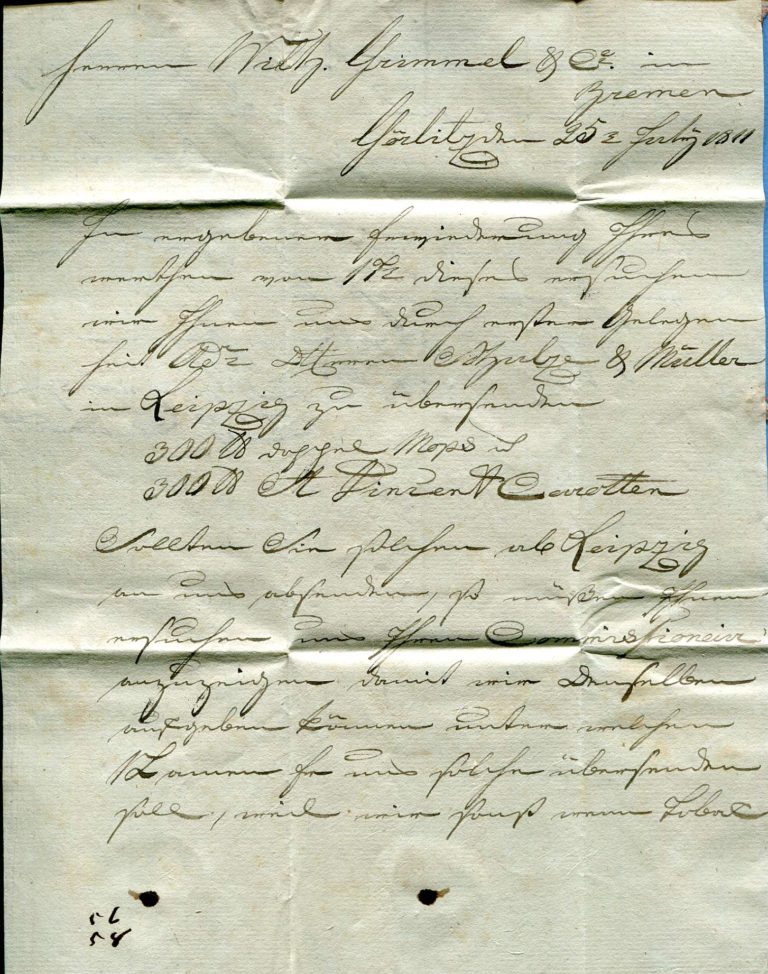 Herren Wilh. Grimmel & Co. in
Bremen
Görlitz den 25 July 1811
In ergebener Erwiederung Ihres
werthen vom dieses ersuchen
wir Ihnen uns durch erster Gelegen
heit Herren Schulze & Müller
in Leipzig zu übersenden
300 ℔ doppel Mops &
300 ℔ St Vincent Carotten
Sollten Sie solchen ab Leipzig
an uns absenden, so müßen Ihnen
ersuchen uns Ihren Commissioneur
anzuzeigen damit wir Denselben
aufgeben können unter welchen
Namen Er uns solche übersenden
soll, weil wir sonst wenn Tobac
56
58